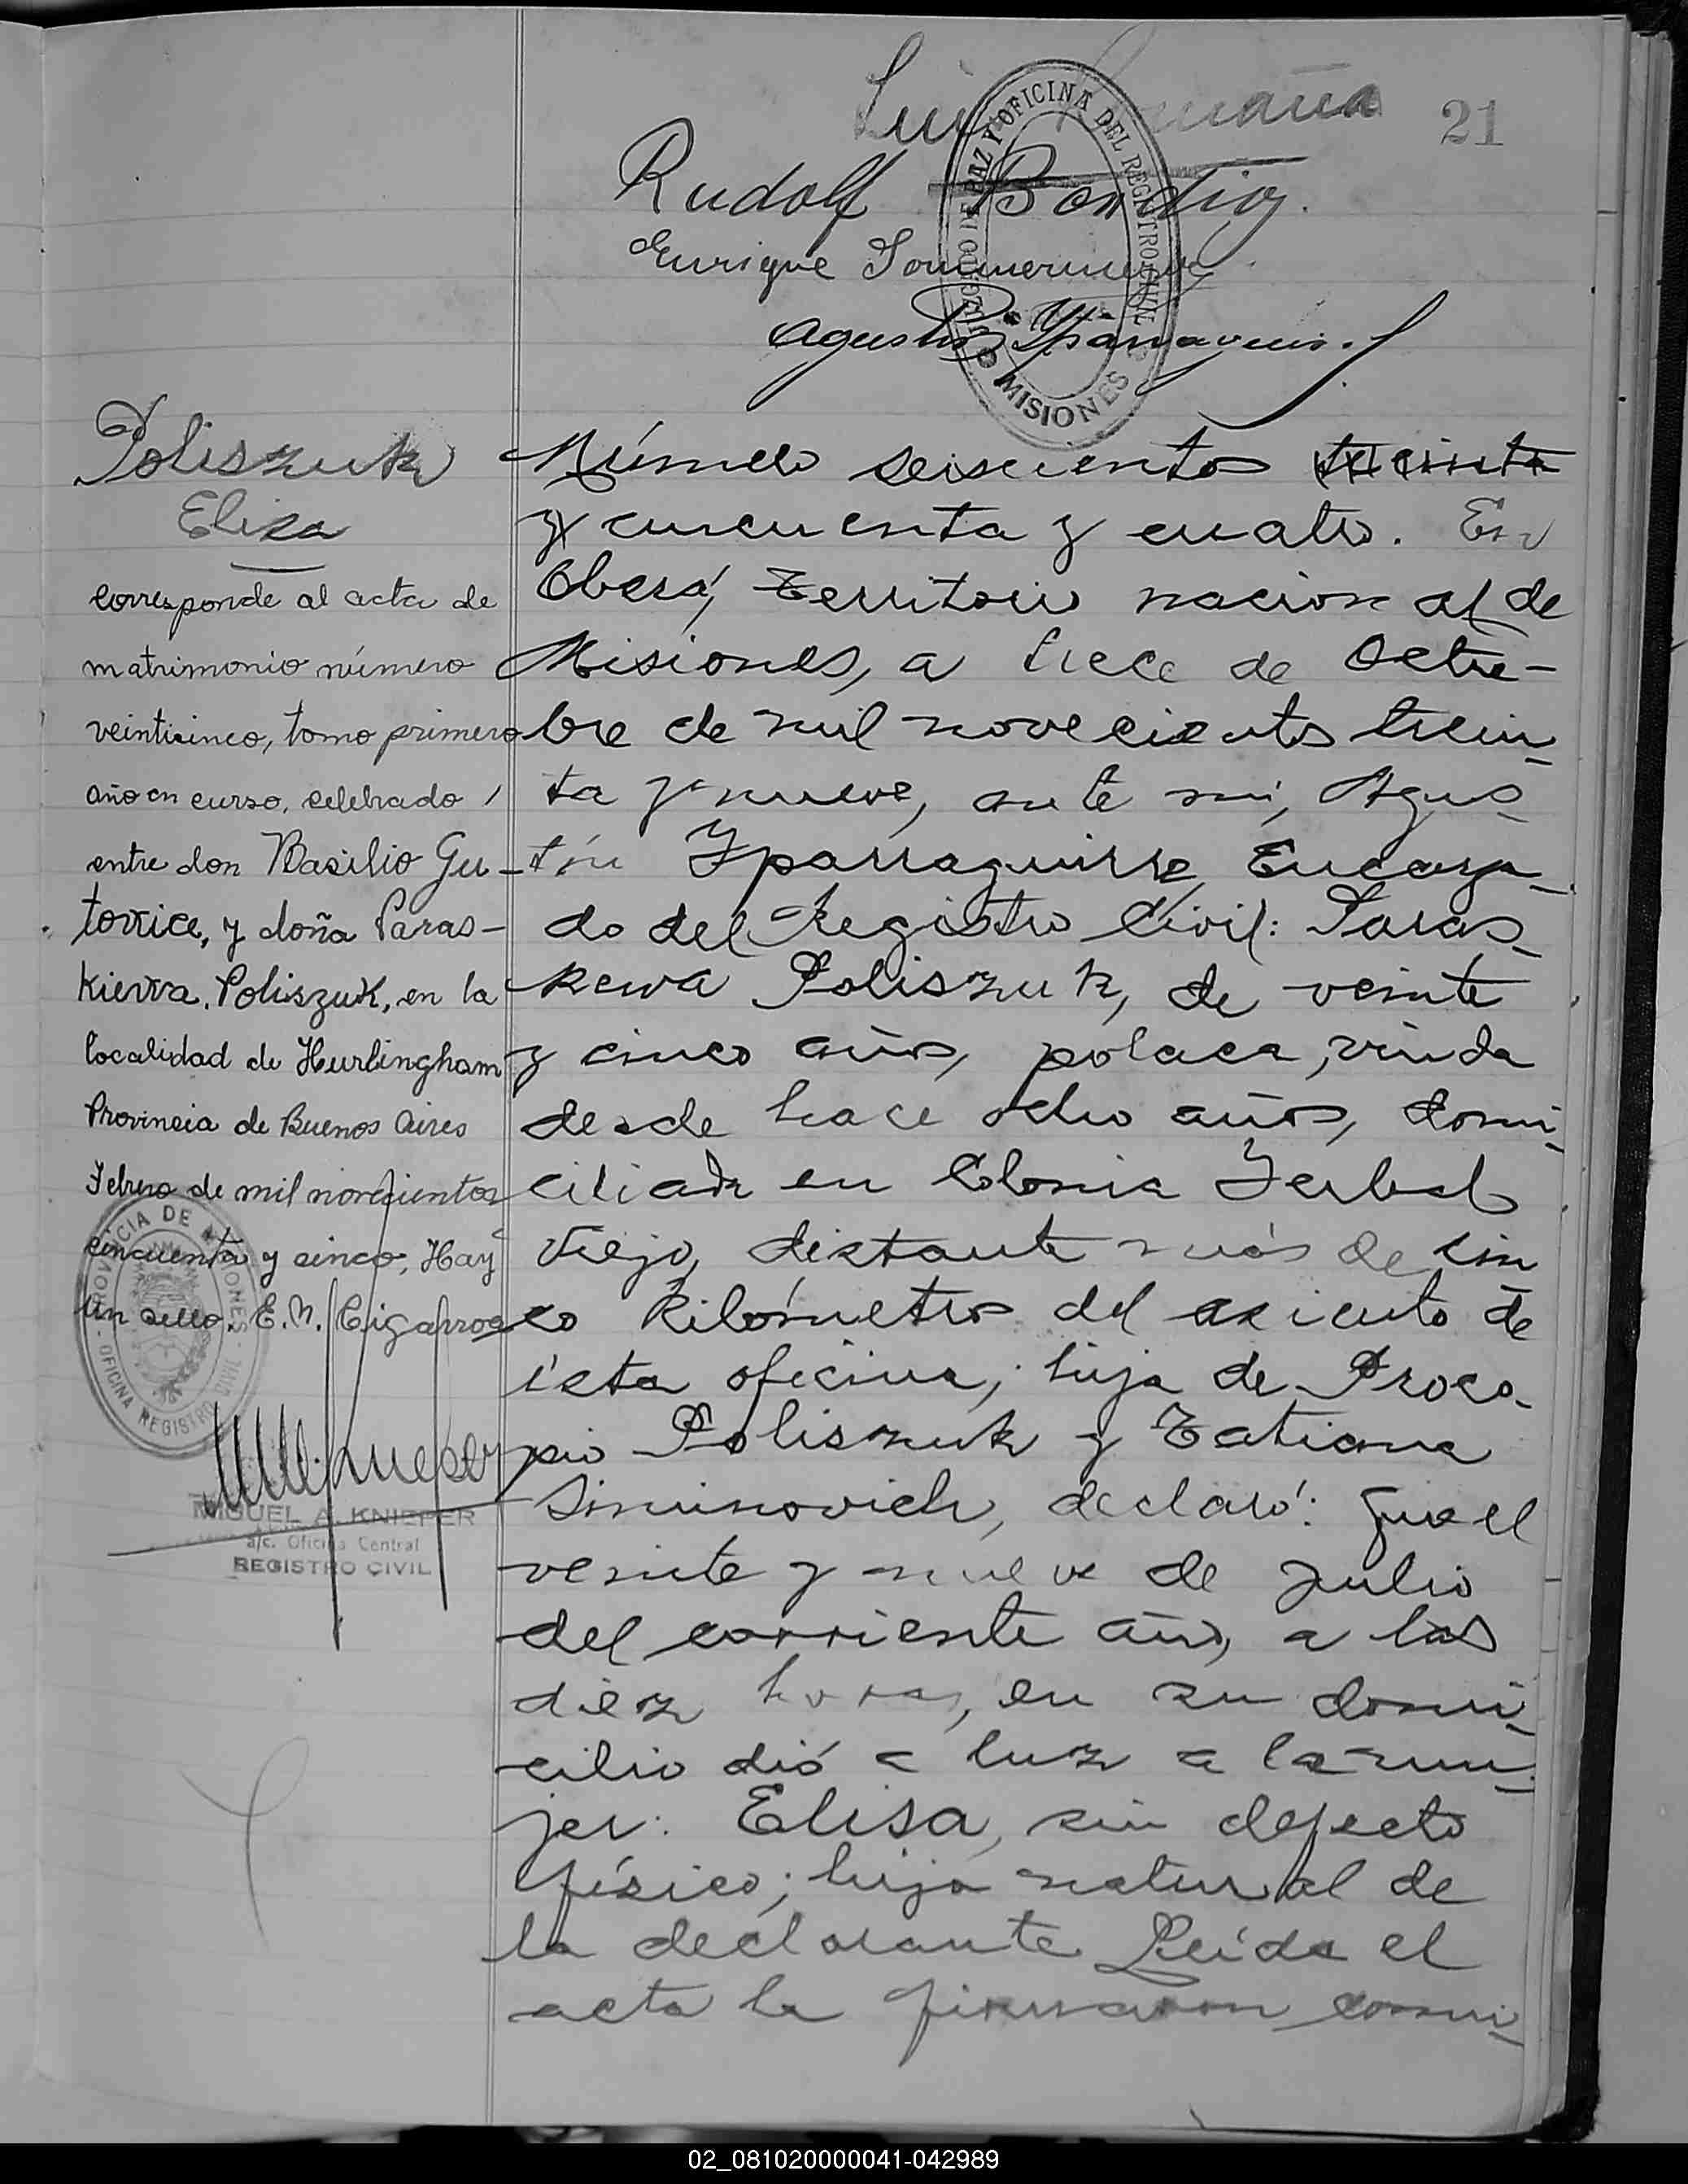 21
Rudolf
Enrique
JUZGADO DE PAZ Y OFICINA DEL REGISTRO CIVIL
MISIONES
Poliszuk
Elisa
corresponde al acta de
matrimonio número
veinticinco, tomo primero
año en curso, celebrado
entre don Basilio Gu-
towice, y doña Paras-
kiewa, Poliszuk, en la
localidad de Hurlingham
Provincia de Buenos Aires
Febrero de mil novecientos
cincuenta y cinco, Hay
Un sello. E. N.
PROVINCIA DE MISIONES
OFICINA REGISTRO CIVIL
MIGUEL A. KNIEPER
a/c. Oficina Central
REGISTRO CIVIL
Número seiscientos treinta
y cincuenta y cuatro. En
Oberá, Territorio nacional de
Misiones, a trece de Octu-
bre de mil novecientos trein-
ta y nueve, ante mi, Agus-
tín Yparraguirre, Encarga-
do del Registro Civil: Paras-
kewa Poliszuk, de veinte
y cinco años, polaca, viuda
desde hace ocho años, domi-
ciliada en Colonia Yerbal
Viejo, distante más de cin
co kilómetros del asiento de
ésta oficina; hija de Proco-
pio Poliszuk y Tatiana
Siminovich, declaró: Que el
veinte y nueve de Julio
del corriente año, a las
diez horas, en su domi-
cilio dió a luz a la mu-
jer: Elisa, sin defecto
físico; hija natural de
la declarante Leída el
acta la firmaron conmi-
02_081020000041-042989